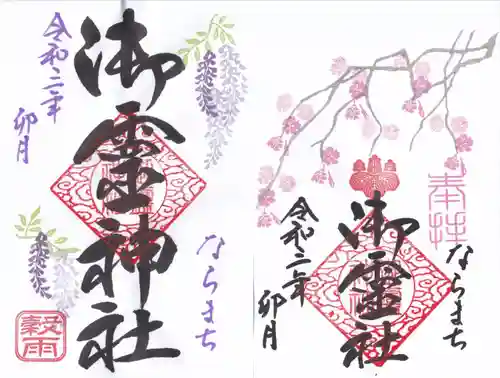 令和二年
卯月
御霊神社
ならまち
穀雨
奉拝
ならまち
御霊
令和二年
卯月